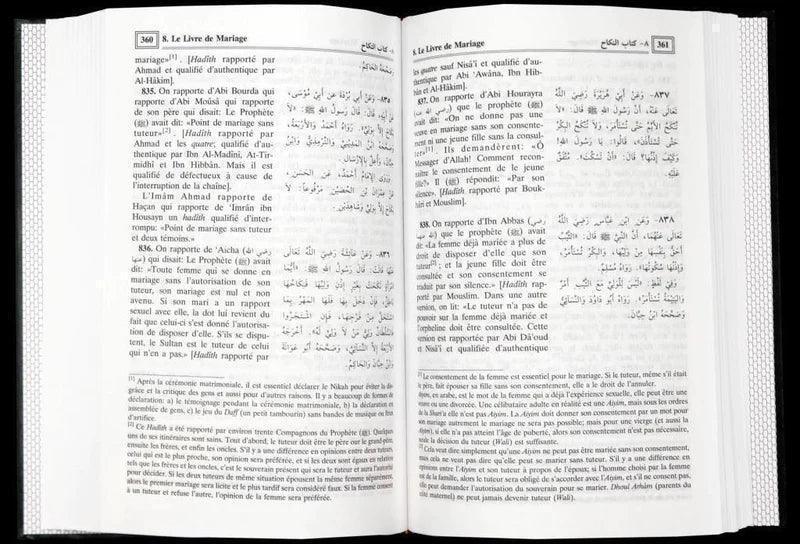 360 8. Le Livre de Mariage
٨- كتاب النكاح
mariage»[1]. [Hadîth rapporté par
Ahmad et qualifié d'authentique par
Al-Hâkim].
835. On rapporte d'Abi Bourda qui
rapporte d'Abi Moûsâ qui rapporte
de son père qui disait: Le Prophète
(ﷺ) avait dit: «Point de mariage sans
tuteur»[2]. [Hadîth rapporté par
Ahmad et les quatre; qualifié d'au-
thentique par Ibn Al-Madînî, At-Tir-
midhî et Ibn Hibbân. Mais il est
qualifié de défectueux à cause de
l'interruption de la chaîne].
L'Imâm Ahmad rapporte de
Haçan qui rapporte de 'Imrân ibn
Housayn un hadîth qualifié d'inter-
rompu: «Point de mariage sans tuteur
et deux témoins.»
836. On rapporte de 'Aicha (رضي الله
عنها) qui disait: Le Prophète (ﷺ) avait
dit: «Toute femme qui se donne en
mariage sans l'autorisation de son
tuteur, son mariage est nul et non
avenu. Si son mari a un rapport
sexuel avec elle, la dot lui revient du
fait que celui-ci s'est donné l'autorisa-
tion de disposer d'elle. S'ils se dispu-
tent, le Sultan est le tuteur de celui
qui n'en a pas.» [Hadîth rapporté par
وَصَحَّحَهُ الْحَاكِمُ.
٨٣٥- وَعَنْ أَبِي بُرْدَةَ عَنْ أَبِي مُوسَى،
عَنْ أَبِيهِ، قَالَ: قَالَ رَسُولُ اللهِ ﷺ: «لاَ
نِكَاحَ إِلاَّ بِوَلِيٍّ». رَوَاهُ أَحْمَدُ وَالأَرْبَعَةُ،
وَصَحَّحَهُ ابْنُ الْمَدِينِيِّ وَالتِّرْمِذِيُّ وَابْنُ
حِبَّانَ، وَأُعِلَّ بِالإِرْسَالِ.
وَرَوَى الإِمَامُ أَحْمَدُ، عَنِ الْحَسَنِ،
عَنْ عِمْرَانَ بْنِ الْحُصَيْنِ مَرْفُوعاً: «لاَ
نِكَاحَ إِلاَّ بِوَلِيٍّ وَشَاهِدَيْنِ».
٨٣٦- وَعَنْ عَائِشَةَ رَضِيَ اللَّهُ تَعَالَى
عَنْهَا قَالَتْ: قَالَ رَسُولُ اللهِ ﷺ: «أَيُّمَا
امْرَأَةٍ نَكَحَتْ بِغَيْرِ إِذْنِ وَلِيِّهَا فَنِكَاحُهَا
بَاطِلٌ، فَإِنْ دَخَلَ بِهَا فَلَهَا الْمَهْرُ بِمَا
اسْتَحَلَّ مِنْ فَرْجِهَا، فَإِنِ اشْتَجَرُوا
فَالسُّلْطَانُ وَلِيُّ مَنْ لاَ وَلِيَّ لَهُ». أَخْرَجَهُ
الأَرْبَعَةُ إِلاَّ النَّسَائِيَّ، وَصَحَّحَهُ أَبُو عَوَانَةَ
وَابْنُ حِبَّانَ وَالْحَاكِمُ.
[1] Après la cérémonie matrimoniale, il est essentiel déclarer le Nikah pour éviter la dis-
grâce et la critique des gens et aussi pour d'autres raisons. Il y a beaucoup de formes de
déclaration: a) le témoignage pendant la cérémonie matrimoniale, b) la déclaration en
assemblée de gens, c) le jeu du Daff (un petit tambourin) sans bandes de musique ou feu
d'artifice.
[2] Ce Hadîth a été rapporté par environ trente Compagnons du Prophète (ﷺ). Quelques
uns de ses itinéraires sont sains. Tout d'abord, le tuteur doit être le père our le grand-père,
ensuite les frères, et enfin les oncles. S'il y a une différence d'opinions entre deux tuteurs,
celui qui est le plus proche, son opinion sera préférée, et si les deux sont égaux en relation
tels que les frères et les oncles, c'est le souverain présent qui sera le tuteur et aura l'autorité
pour décider. Si les deux tuteurs de même situation épousent la même femme séparément,
alors le premier mariage sera licite et le plus tardif sera considéré faux. Si la femme consent
à un tuteur et refuse l'autre, l'opinion de la femme sera préférée.
8. Le Livre de Mariage
٨- كتاب النكاح 361
les quatre sauf Nisâ'i et qualifié d'au-
thentique par Abi 'Awâna, Ibn Hib-
bân et Al-Hâkim].
837. On rapporte d'Abi Hourayra
(رضي الله عنه) que le prophète (ﷺ)
avait dit: «On ne donne pas une
veuve en mariage sans son consente-
ment ni une jeune fille sans la consul-
ter»[1]. Ils demandèrent: «Ô
Messager d'Allah! Comment recon-
naître le consentement de le jeune
fille?» Il (ﷺ) répondit: «Par son
silence». [Hadîth rapporté par Bouk-
hâri et Mouslim].
838. On rapporte d'Ibn Abbas (رضي
الله عنهما) que le prophète (ﷺ) avait
dit «La femme déjà mariée a plus de
droit de disposer d'elle que son
tuteur[2]; et la jeune fille doit être
consultée et son consentement se
traduit par son silence.» [Hadîth rap-
porté par Mouslim. Dans une autre
version, on lit: «Le tuteur n'a pas de
pouvoir sur la femme déjà mariée et
l'orpheline doit être consultée. Cette
version est rapportée par Abi Dâ'oud
et Nisâ'î et qualifiée d'authentique
٨٣٧- وَعَنْ أَبِي هُرَيْرَةَ رَضِيَ اللَّهُ
تَعَالَى عَنْهُ، أَنَّ رَسُولَ اللهِ ﷺ قَالَ: «لاَ
تُنْكَحُ الأَيِّمُ حَتَّى تُسْتَأْمَرَ، وَلاَ تُنْكَحُ الْبِكْرُ
حَتَّى تُسْتَأْذَنَ»، قَالُوا: يَا رَسُولَ اللهِ!
وَكَيْفَ إِذْنُهَا؟ قَالَ: «أَنْ تَسْكُتَ». مُتَّفَقٌ
عَلَيْهِ.
٨٣٨- وَعَنْ ابْنِ عَبَّاسٍ رَضِيَ اللَّهُ
تَعَالَى عَنْهُمَا، أَنَّ النَّبِيَّ ﷺ قَالَ: «الثَّيِّبُ
أَحَقُّ بِنَفْسِهَا مِنْ وَلِيِّهَا، وَالْبِكْرُ تُسْتَأْمَرُ،
وَإِذْنُهَا سُكُوتُهَا». رَوَاهُ مُسْلِمٌ.
وَفِي لَفْظٍ: «لَيْسَ لِلْوَلِيِّ مَعَ الثَّيِّبِ أَمْرٌ
وَالْيَتِيمَةُ تُسْتَأْمَرُ». رَوَاهُ أَبُو دَاوُدَ وَالنَّسَائِيُّ
وَصَحَّحَهُ ابْنُ حِبَّانَ.
[1] Le consentement de la femme est essentiel pour le mariage. Si le tuteur, même s'il était
le père, fait épouser sa fille sans son consentement, elle a le droit de l'annuler.
Aiyim, en arabe, est le mot de la femme qui a déja l'expérience sexuelle, elle peut être une
veuve ou une divorcée. Une célibataire adulte en réalité est une Aiyim, mais sous les ordres
de la Shari'a elle n'est pas Aiyim. La Aiyim doit donner son consentement par un mot pour
son mariage autrement le mariage ne sera pas possible; mais pour une vierge (et aussi la
Aiyim), si elle n'a pas atteint l'âge de puberté, alors son consentement n'est pas nécessaire,
seule la décision du tuteur (Wali) est suffisante.
[2] Cela veut dire simplement qu'une Aiyim ne peut pas être mariée sans son consentement,
mais cela ne peut pas dire qu'elle peut se marier sans tuteur. S'il y a une différence en
opinions entre l'Aiyim et son tuteur à propos de l'époux; si l'homme choisi par la femme
est de la famille, alors le tuteur sera obligé de s'accorder avec l'Aiyim, et s'il ne consent pas,
elle peut demander l'autorisation du souverain pour se marier. Dhoul Arhâm (parents du
côté maternel) ne peut jamais devinir tuteur (Wali).